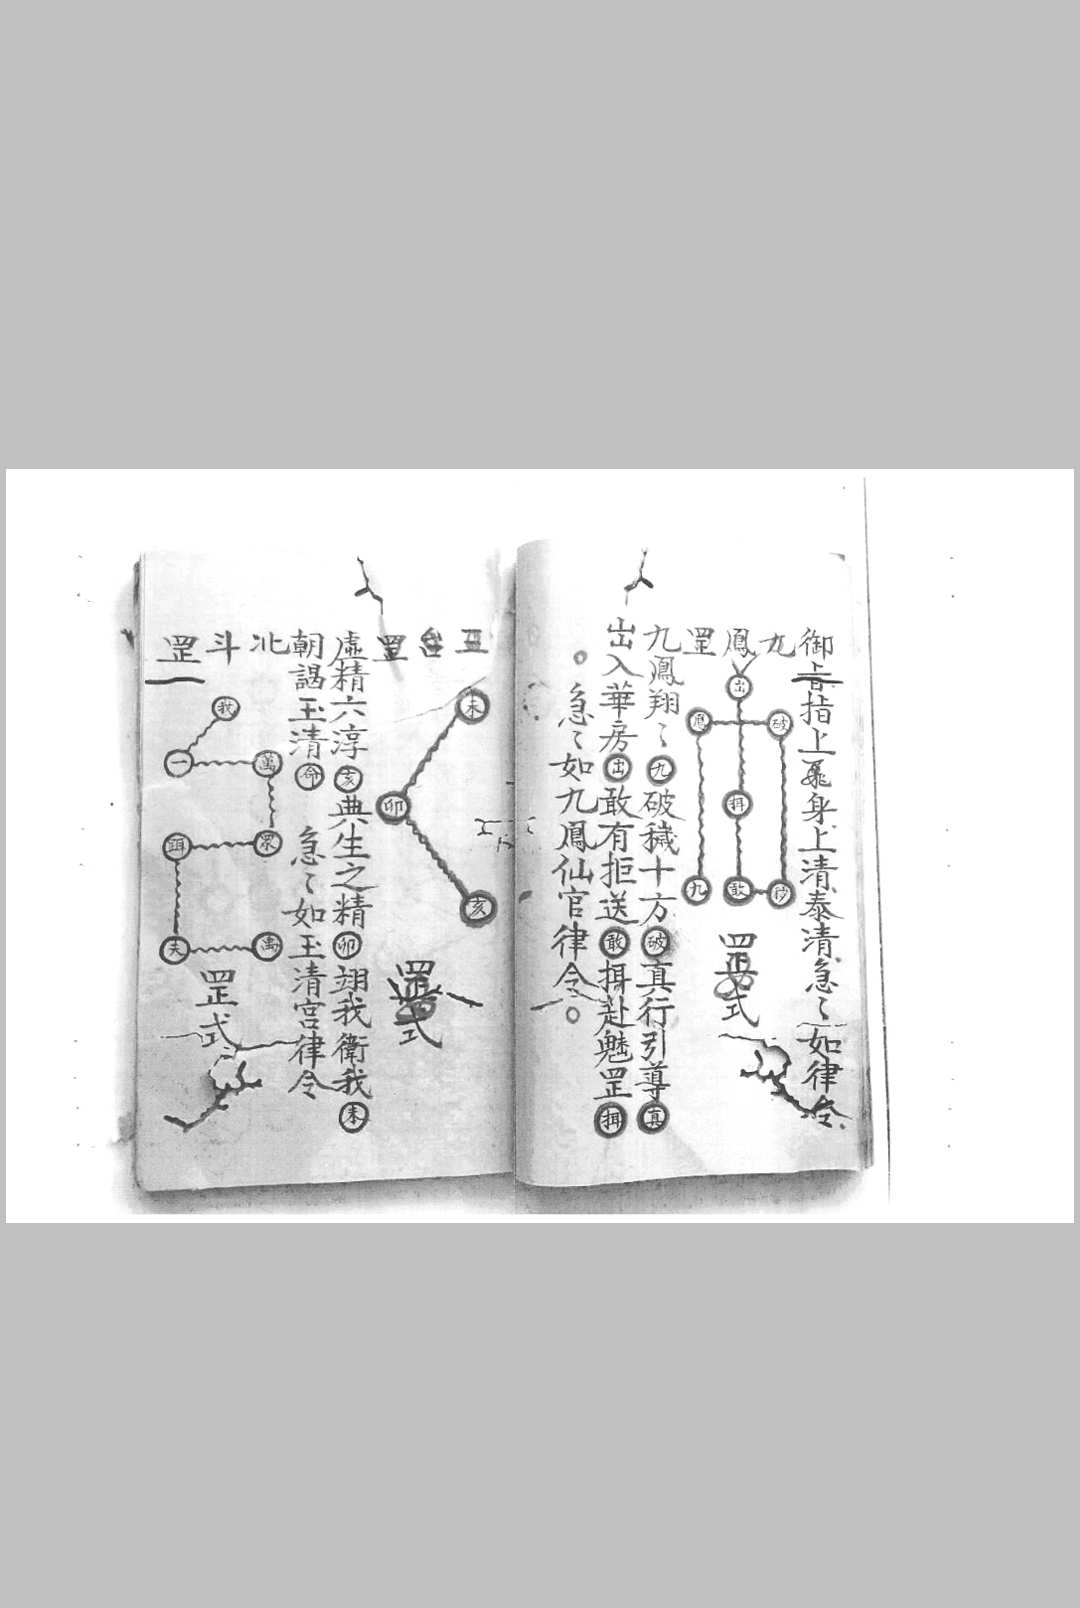 御旨指上飛身上清泰清急〻如律令
九鳳罡
出
鳳
破
揖
九
敢
穢
罡式
九鳳翔〻九破穢十方破真行引導真
出入華房出敢有拒送敢揖赴魁罡揖
急〻如九鳳仙官律令
三台罡
未
卯
亥
罡式
虛精六淳亥典生之精卯翊我衛我未
朝謁玉清命 急〻如玉清宮律令
北斗罡
我
一
萬
眾
夫
罡式